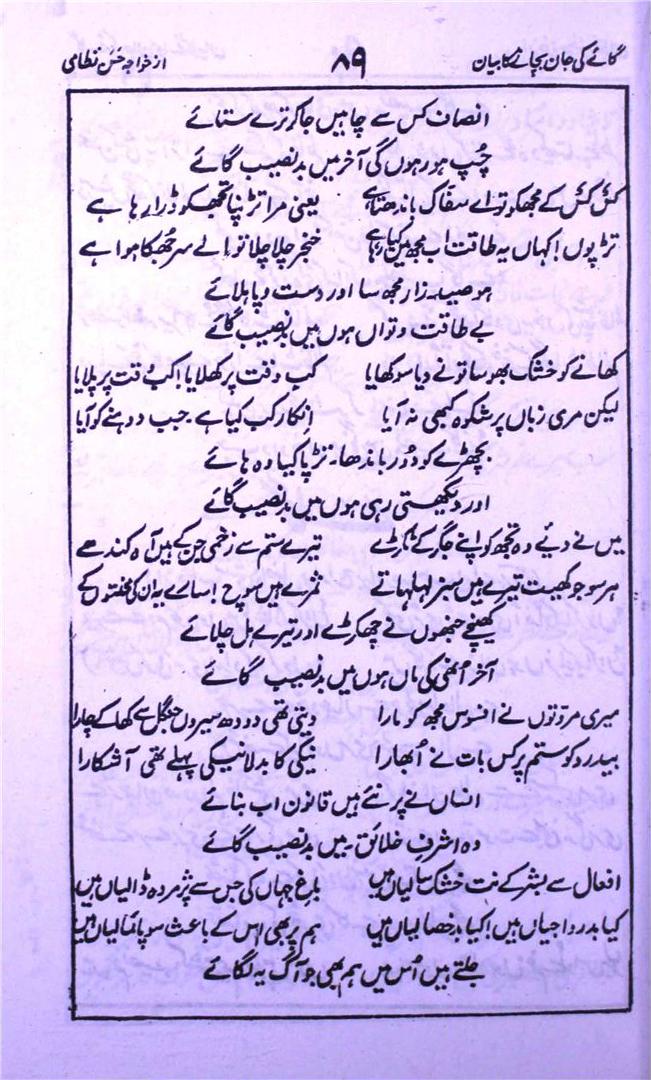 گائے کی جان بچانے کا بیان ۸۹ از خواجہ حسن نظامی
انصاف کس سے چاہیں جا کر ترے ستائے
چُپ ہو رہوں گی آخر میں بدنصیب گائے
کَس کَس کے مجھکو تو اے سفاک باندھتا ہے یعنی مرا تڑپنا تجھکو ڈرا رہا ہے
تڑپوں! کہاں یہ طاقت اب مجھ میں کیا رہا ہے خنجر چلا چلا تو ہالے سر جُھکا ہوا ہے
ہو صید زار مجھ سا اور دست و پا ہلائے
بے طاقت و تواں ہوں میں بدنصیب گائے
کھانے کو خشک بھوسا تونے دیا سو کھایا کب وقت پر کھلایا! کب وقت پر پلایا
لیکن مری زباں پر شکوہ کبھی نہ آیا انکار کب کیا ہے۔ جب دوہنے کو آیا
بچھڑے کو دُور باندھا۔ تڑپا کیا وہ ہائے
اور دیکھتی رہی ہوں میں بدنصیب گائے
میں نے دیے وہ تجھ کو اپنے جگر کے ٹکڑے تیرے ستم سے زخمی جن کے ہیں آہ کندھے
ہر سو جو کھیت تیرے ہیں سبز لہلہاتے ثمرے ہیں سوچ! سارے یہ ان کی محنتوں کے
کھینچے جنھوں نے چھکڑے اور تیرے ہل چلائے
آخر اُنھی کی ماں ہوں میں بدنصیب گائے
میری مروّتوں نے افسوس مجھ کو مارا دیتی تھی دودھ سیروں جنگل سے کھا کے چارا
بیدرد کو ستم پر کس بات نے اُبھارا نیکی کا بدلا نیکی پہلے تھی آشکارا
انساں نے پر نئے ہیں قانون اب بنائے
وہ اشرفِ خلائق۔ میں بدنصیب گائے
افعال سے بشر کے نت خشک سالیاں ہیں باغ جہاں کی جس سے پژمردہ ڈالیاں ہیں
کیا بدرواجیاں ہیں! کیا بدخصالیاں ہیں ہم پر بھی اس کے باعث سو پائمالیاں ہیں
جلتے ہیں اُس میں ہم بھی جو آگ یہ لگائے